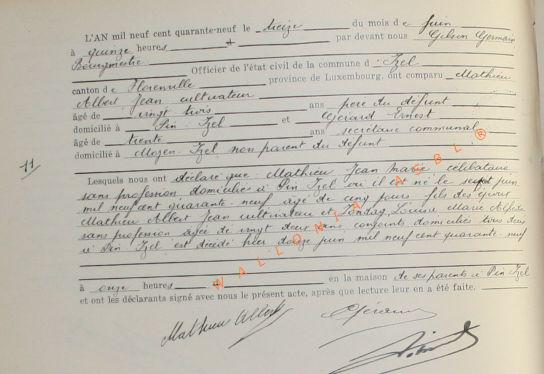 L'AN mil neuf cent quarante-neuf le treize du mois de juin
à quinze heures par devant nous Gilson Germain
Bourgmestre Officier de l'état civil de la commune d Izel
canton de Florenville province de Luxembourg, ont comparu Mathieu
Albert Jean cultivateur
âgé de vingt trois ans père du défunt
domicilié à Pin Izel et Gérard Ernest
âgé de trente ans secrétaire communal
domicilié à Moyen Izel non parent du défunt
11
Lesquels nous ont déclaré que Mathieu Jean Marie célibataire
sans profession domicilié à Pin Izel où il est né le sept juin
mil neuf cent quarante-neuf âgé de cinq jours fils des époux
Mathieu Albert Jean cultivateur et Louise Marie
sans profession âgée de vingt deux ans conjoints domiciliés tous deux
à Pin Izel est décédé hier douze juin mil neuf cent quarante-neuf
à onze heures en la maison de ses parents à Pin Izel
et ont les déclarants signé avec nous le présent acte, après que lecture leur en a été faite.
Mathieu Albert
WALLONIA ASBL ®